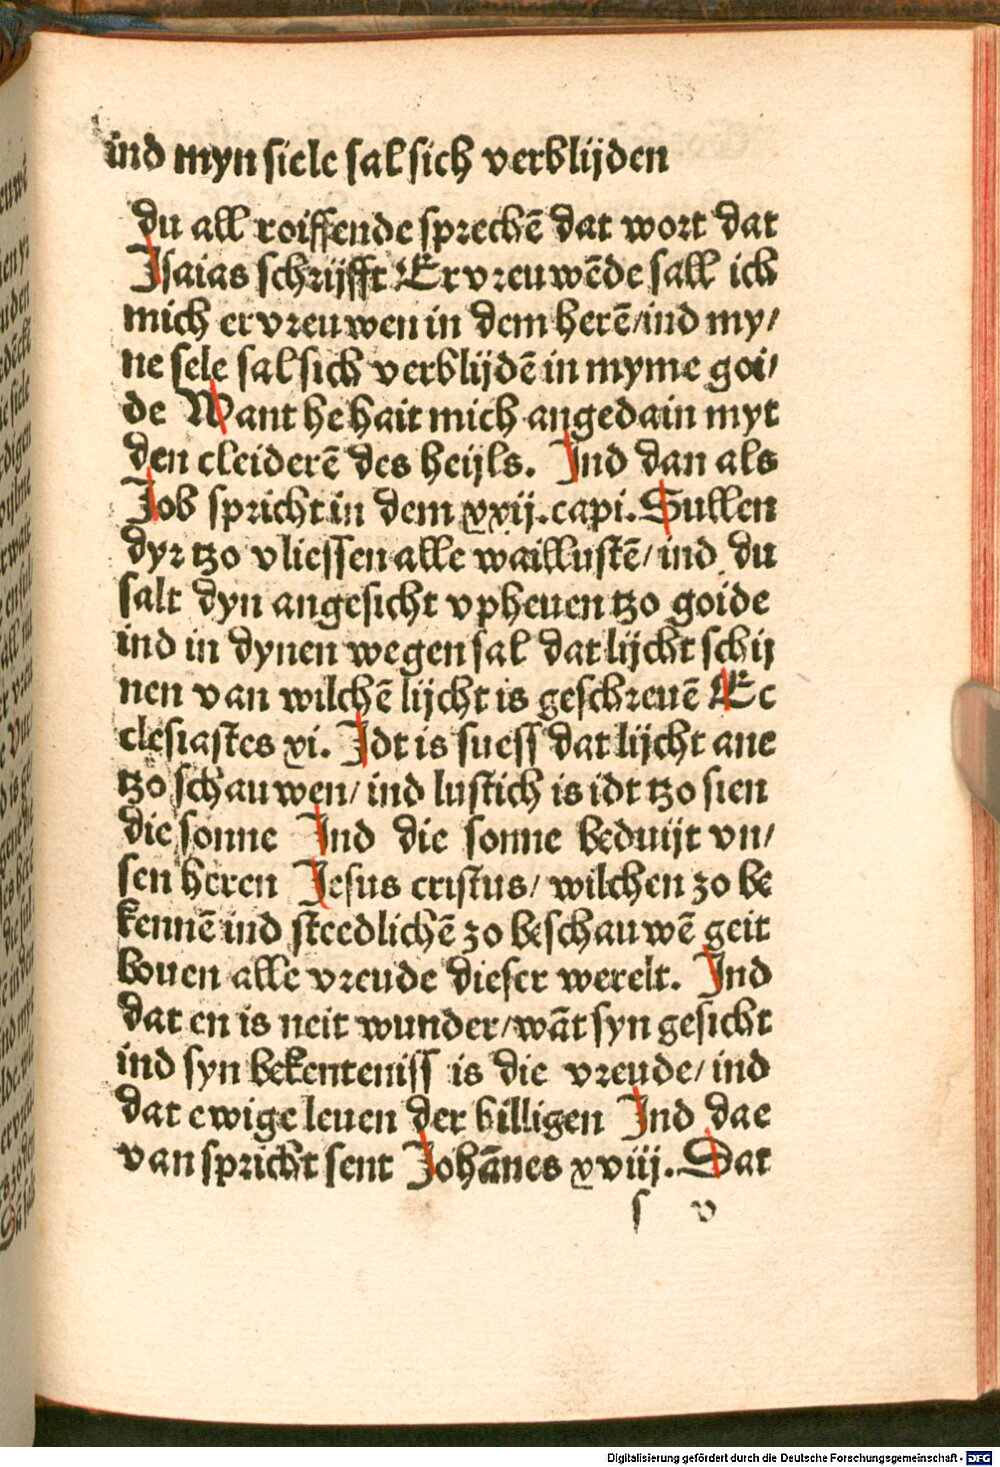 ind myn siele sal sich verblijden
du all roiffende sprechē dat wort dat
Isaias schrijfft Ervreuwēde sall ich
mich ervreuwen in dem herē/ind my/
ne sele sal sich verblijdē in myme goi/
de Want he hait mich angedain myt
den cleiderē des heijls. Ind dan als
Job spricht in dem xxij.capi. Sullen
dyr tzo vliessen alle waillustē/ind du
salt dyn angesicht vpheuen tzo goide
ind in dynen wegen sal dat lijcht schij
nen van wilchē lijcht is geschreuē Ec
clesiastes xi. Idt is suess dat lijcht ane
tzo schauwen/ind lustich is idt tzo sien
die sonne Ind die sonne beduijt vn/
sen heren Jesus cristus/wilchen zo be
kennē ind steedlichē zo beschauwē geit
bouen alle vreude dieser werelt. Ind
dat en is neit wunder/wāt syn gesicht
ind syn bekenteniss is die vreude/ind
dat ewige leuen der billigen Ind dae
van spricht sent Johānes xviij. Dat
s v
Digitalisierung gefördert durch die Deutsche Forschungsgemeinschaft - DFG